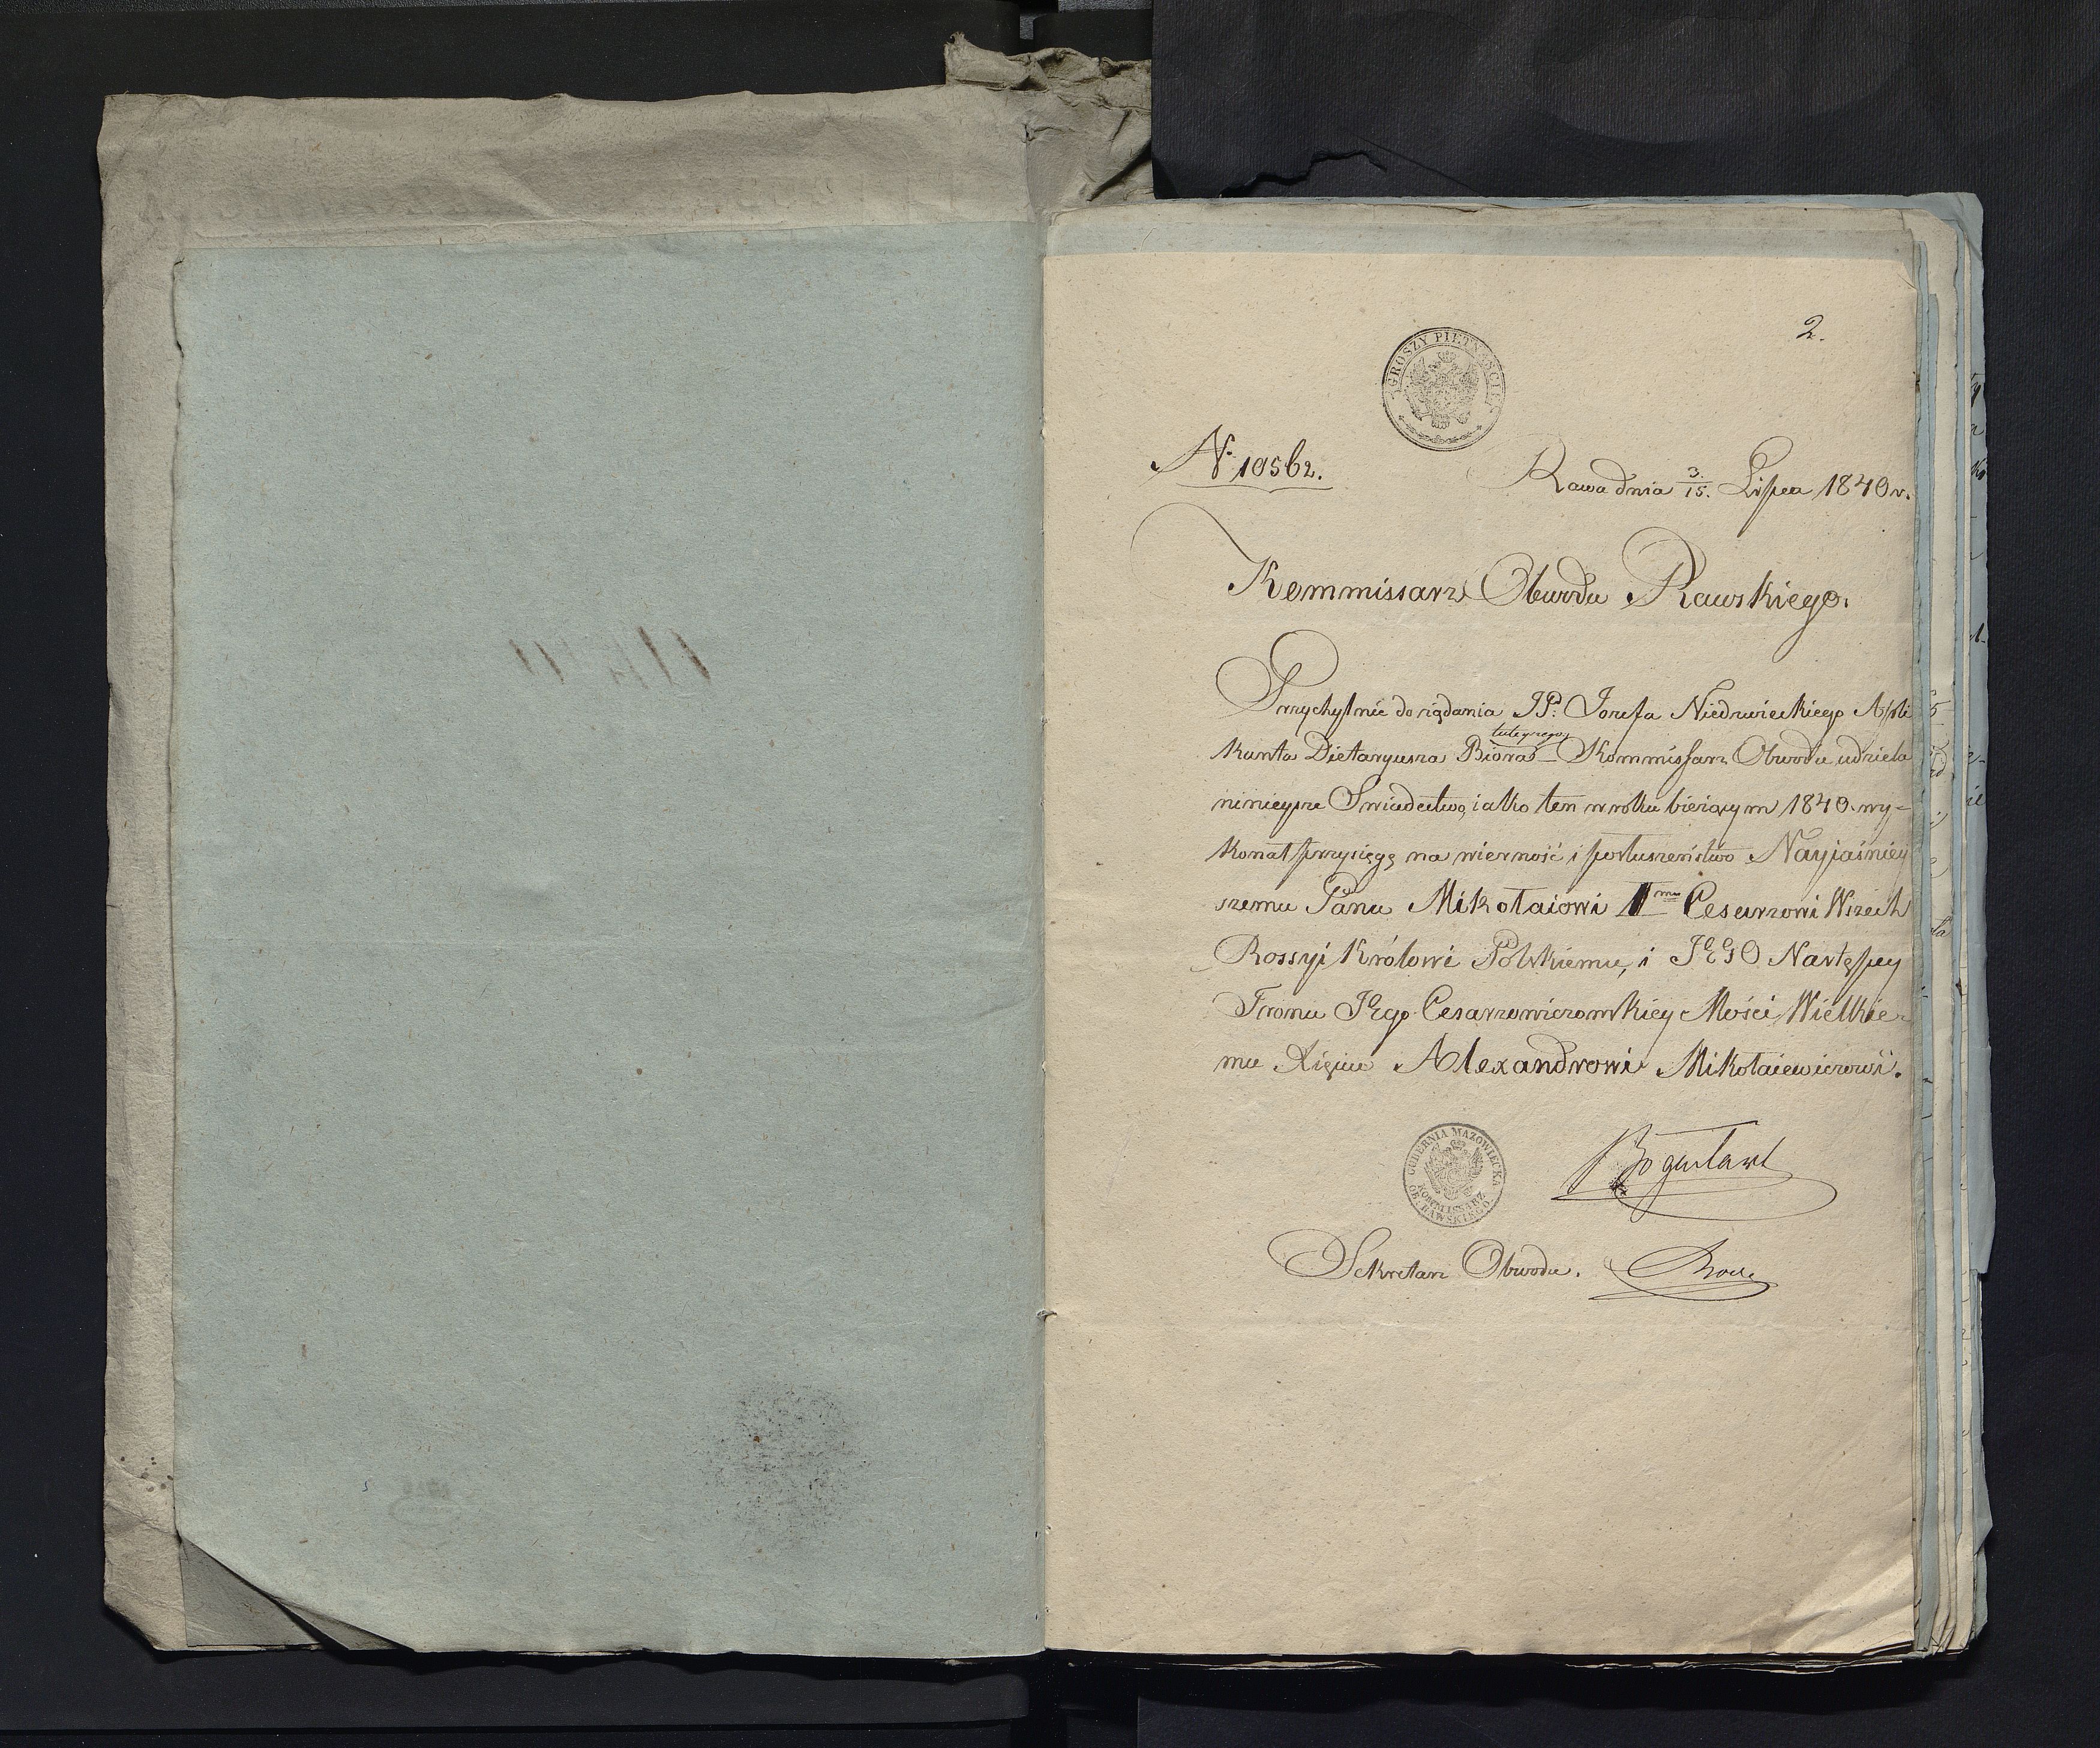 2.
GROSZY PIETNAŚCIE
N. 10562.
Rawa dnia 3./15. Lipca 1840 r.
Kommissarz Obwodu Rawskiego.
Przychylnie do żądania JP. Jozefa Niedzwieckiego Apli
tuteyszego
kanta Dietaryusza Biora Kommissarz Obwodu udziela
ninieysze Swiadectwo, iako ten w roku bieżącym 1840. wy-
konał przysięgę na wierność i posłuszeństwo Nayjaśniey
szemu Panu Mikołaiowi Imu Cesarzowi Wszech
Rossyi Królowi Polskiemu, i JEGO Następcy
Tronu JEgo Cesarzowiczowskiey Mości Wielkie-
mu Xięciu Alexandrowi Mikołaiewiczowi.
GUBERNIA MAZOWIECKA
KOMMISSARZ
OB. RAWSKIEGO
Sekretarz Obwodu.